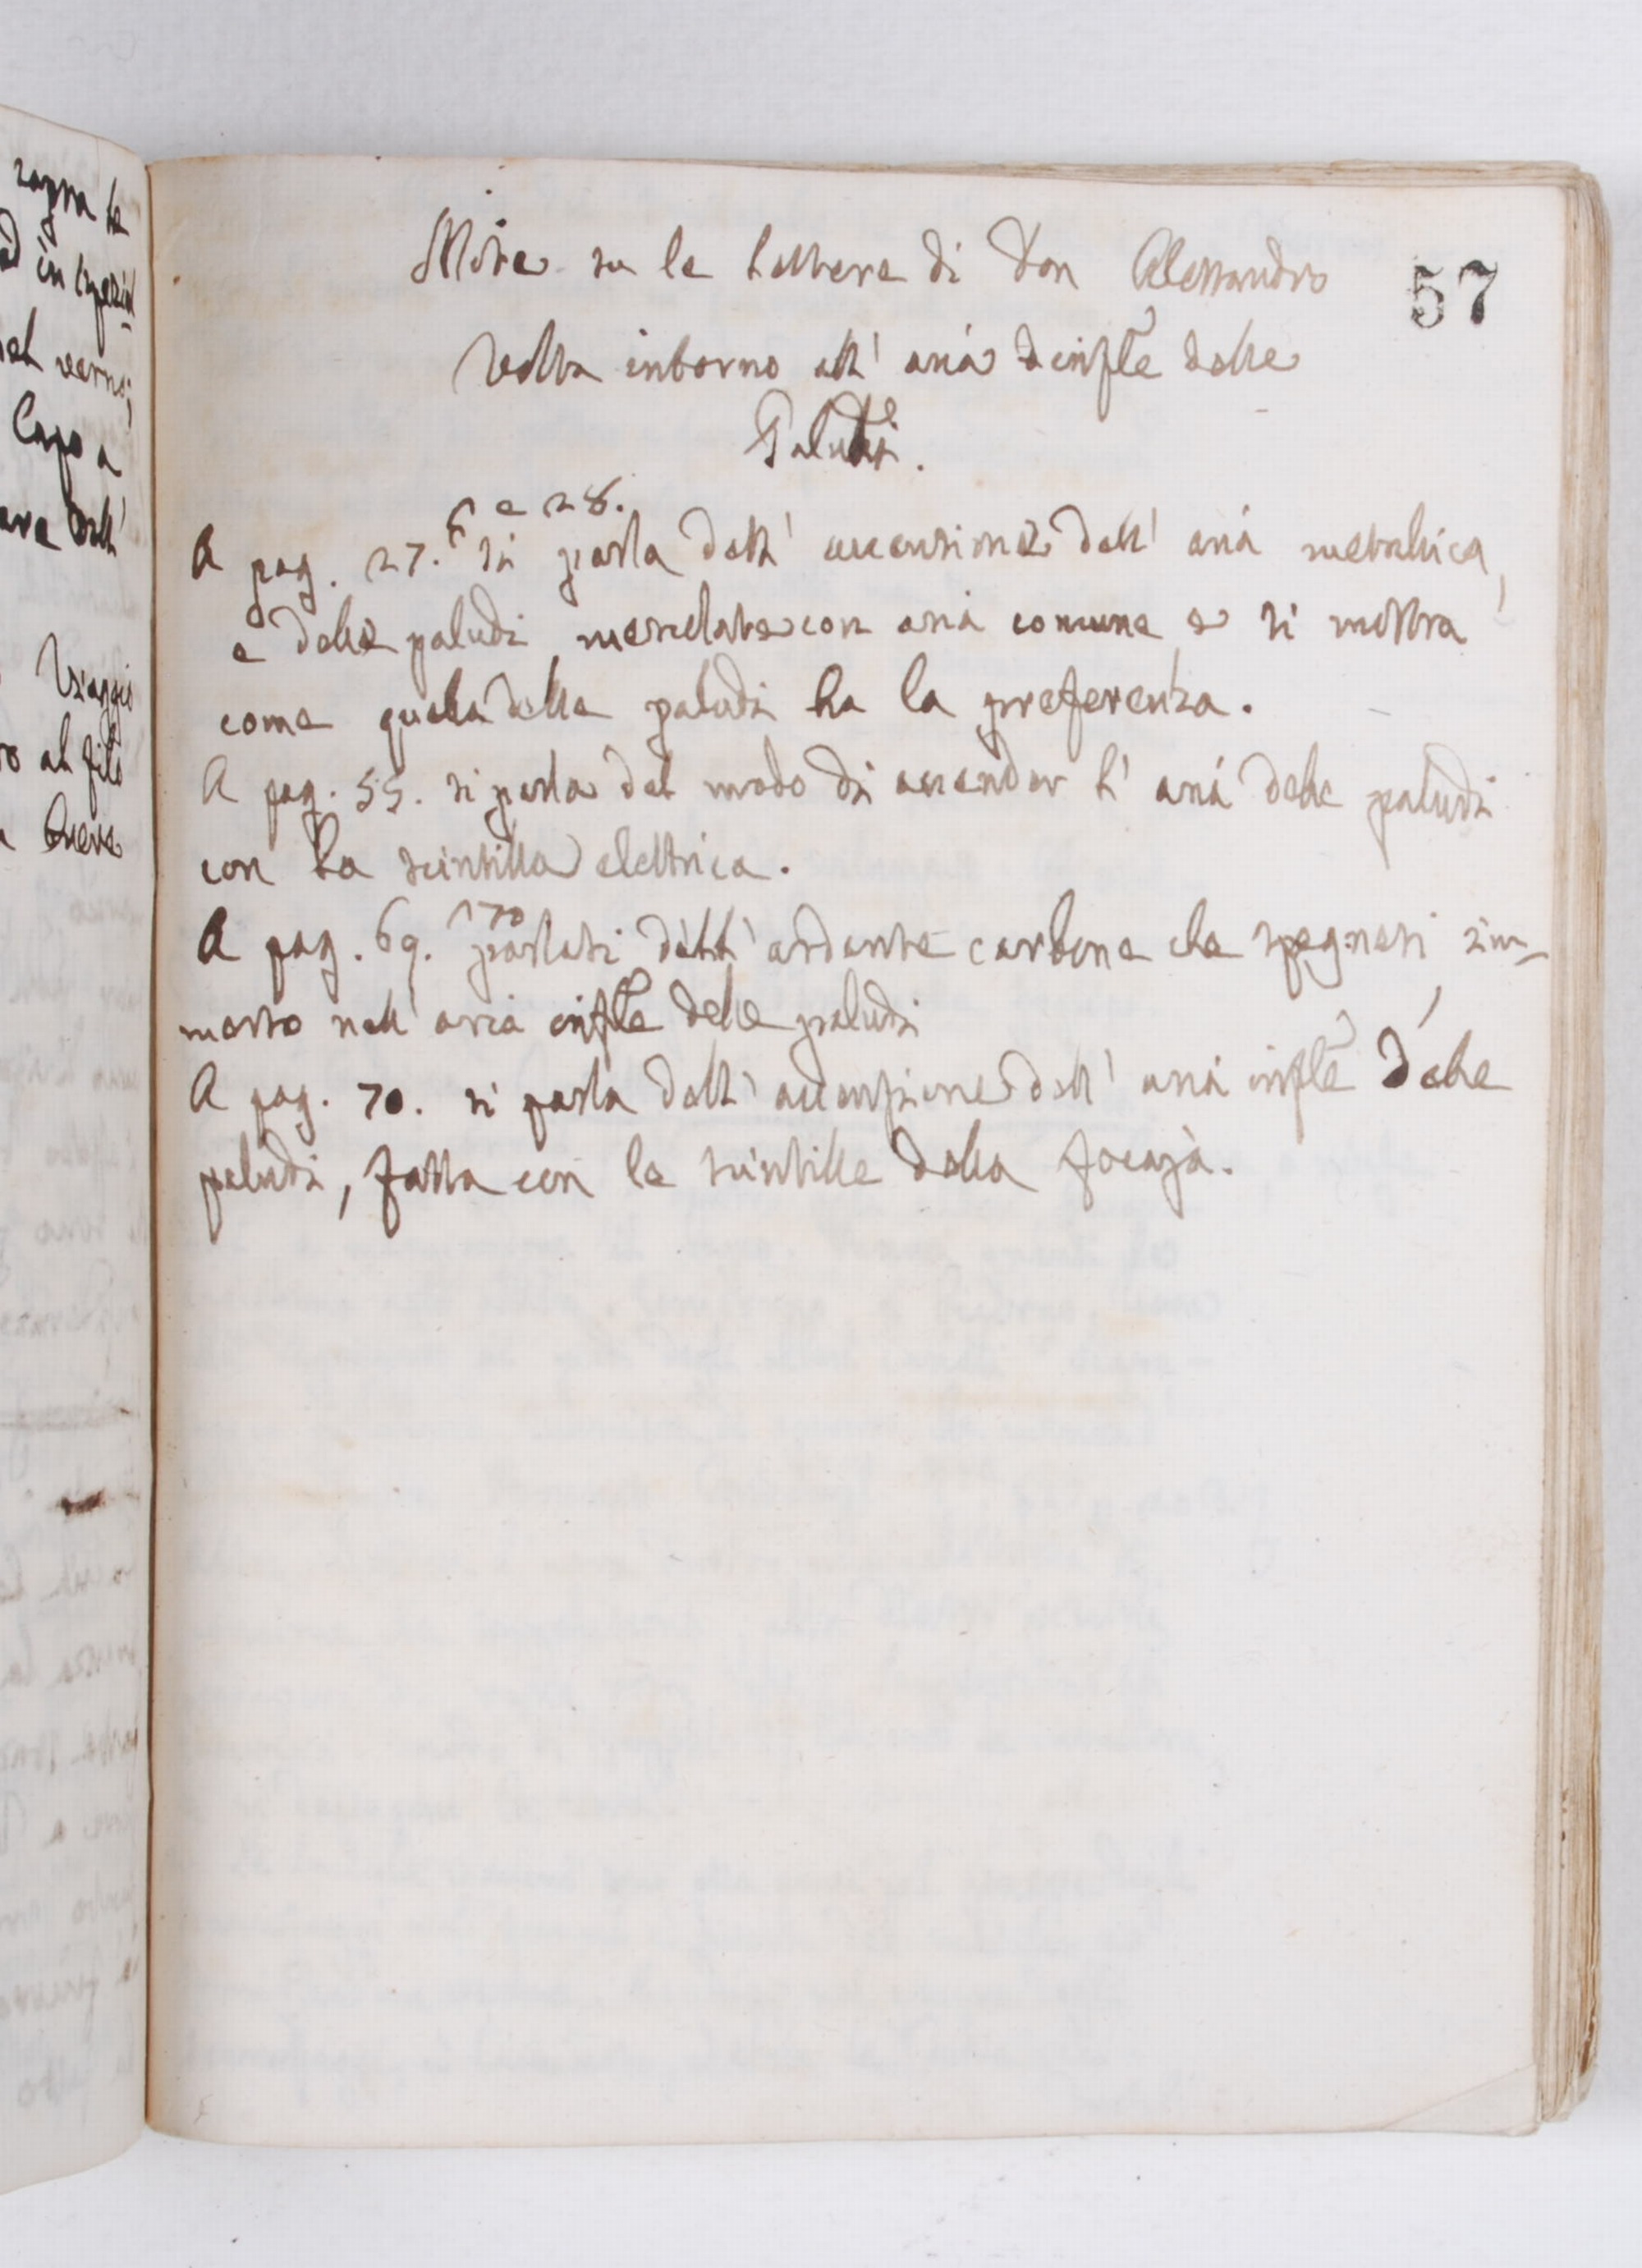 Note su le Lettere di Don Alessandro
57
Volta intorno all' aria infle delle
Paludi.
6 e 28.
A pag. 27. si parla dell' accensione dell' aria metallica,
e delle paludi mescolate con aria comune e si mostra
come quella delle paludi ha la preferenza.
A pag. 55. si parla del modo di accender l' aria delle paludi
con la scintilla elettrica.
A pag. 69. 170 parlasi dell' ardente carbone che spegnesi im-
merso nell' aria infle delle paludi
A pag. 70. si parla dell' accensione dell' aria infle delle
paludi, fatta con le scintille della focaja.
zogna le
in ispezial
nel verno;
Capo a
dell'
Viaggio
al filo